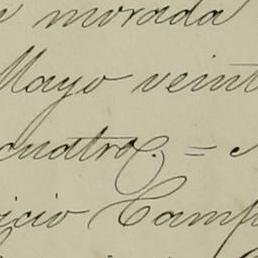 morada
Mayo veint
cuatro. =
icio Camp